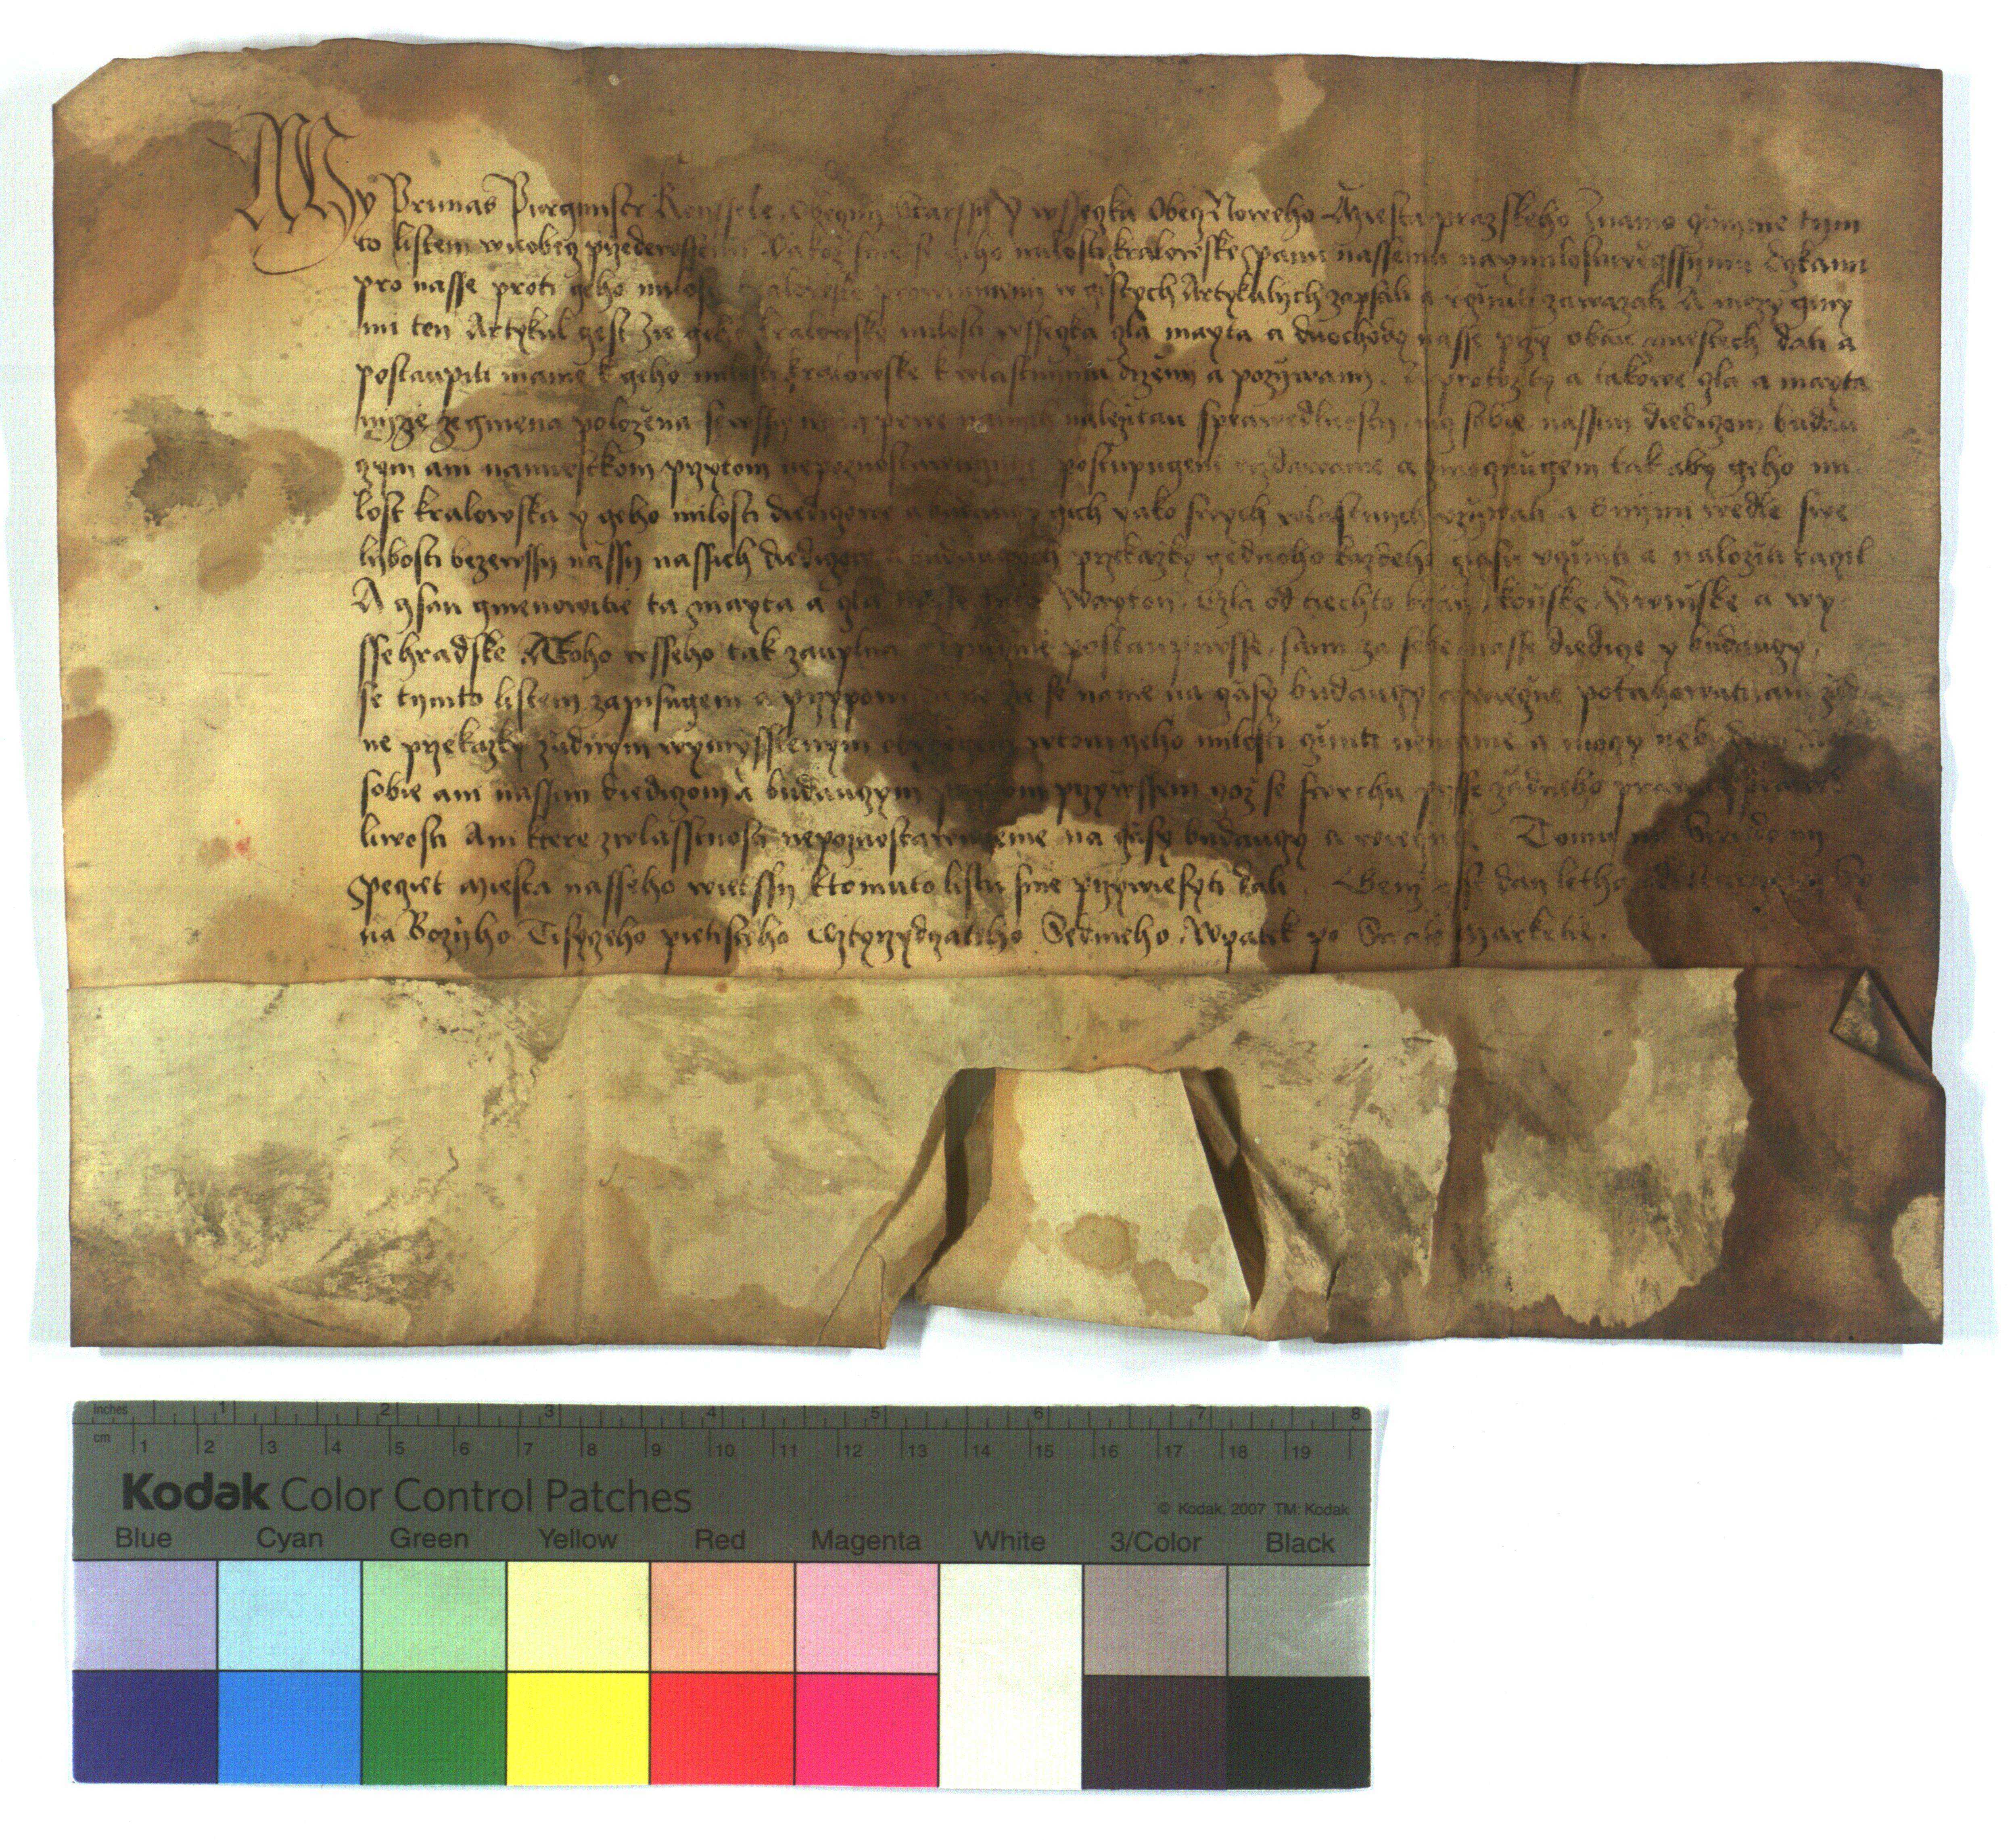 My Primas Purgmistr Konssele, Obeczny Starssy y wsseczka Obecz Noweho Miesta prazskeho Znamo czinime tym
to listem wuobecz przedewssemi Jakoz sme se geho milosti kralowske panu nassemu naymilostiweyssimu
pro nasse proti geho milosti kralowske w gistych Artykulych zapsali a zawazali A mezy gimy
mi ten Artykul gest Zie geho kralowske milosti wsseczka cla mayta a duochody nasse przy obau miestech dati a
postaupiti mame k geho milosti kralowske k wlastnimu drzeni a pozywani. A protoz ty a takowe cla a mayta
nyze gmena polozena sewssy nalezitau sprawedlnosti nicz sobie nassim diediczom budau
czym ani namiestkom postupugem a tak aby geho mi
lost kralowska y geho milosti diediczowe a gich yako swych wlastnych vzywali a cinili wedle swe
libosti bezewssy nassy nassich diediczow a prziekazky gednoho kazdeho czasu vciniti a naloziti raczil
A gsau gmenowitie ta mayta a cla Mayton. Czla od tiechto bran, konske, Swinske a wy
ssehradske Ktoho wsseho tak zauplna postaupiwsse, sami za sebe nasse diedicze y budauczy,
se tymto listem zapisugem a przypowidame zie se name na czasy budauczy a wiecne potahowati ani zad
ne prziekazky zadnym wymysslenym obyczegem wtom geho milosti ciniti nemame a moczy nebudem
sobie ani nassim diediczom a budauczym przywssem yoz se swrchu pisse zadneho
liwosti Ani ktere zwlasstnosti nepozuostawugeme na czasy budauczy a wieczne. Tomu na Swiedomy
Peczet Miesta nasseho wietssy ktomuto listu sme przywiesyti dali. Genz gest dan letha
na Bozyho Tisyczeho pietisteho Cztyrzydczateho Sedmeho. Wpatek po Swate Marketie.
inches 1 2 3 4 5 6 7 8
cm 1 2 3 4 5 6 7 8 9 10 11 12 13 14 15 16 17 18 19
Kodak Color Control Patches
© Kodak, 2007 TM: Kodak
Blue Cyan Green Yellow Red Magenta White 3/Color Black